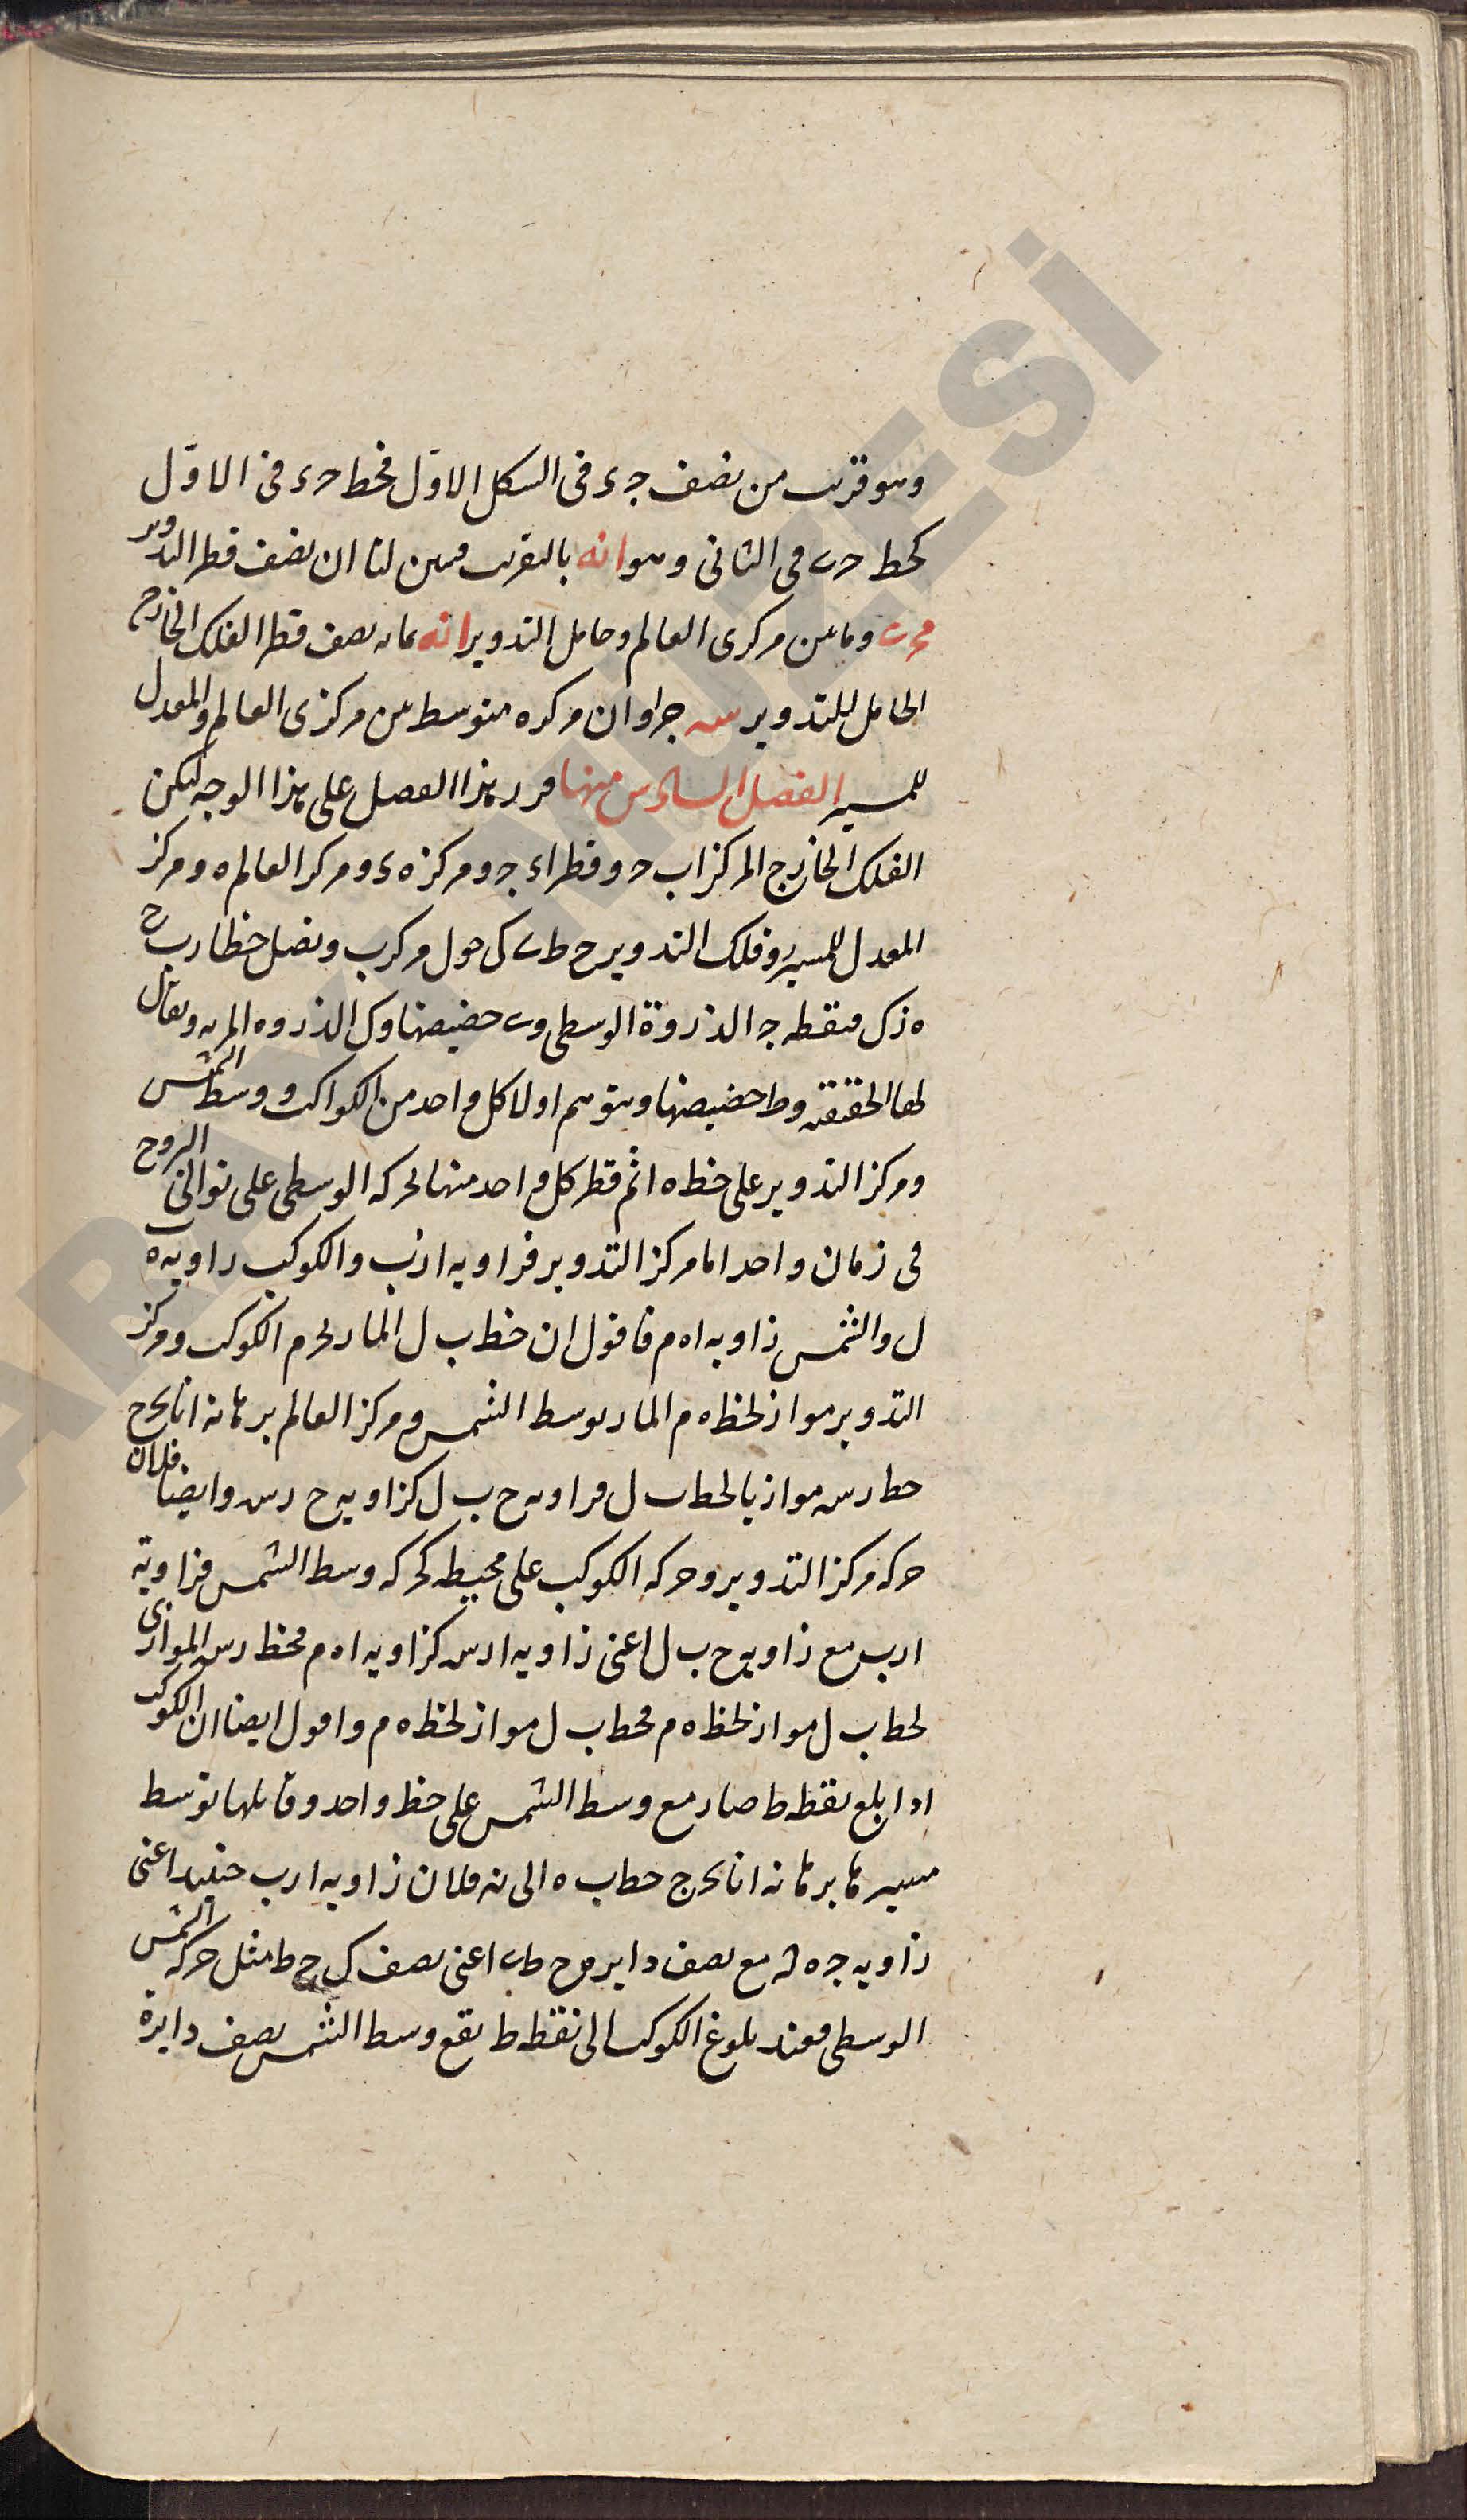 وهو قريب من نصف جء فى الشكل الاوّل فخط حء فى الاوّل
كخط حى فى الثانى وهو انه بالتقريب فتبين لنا ان نصف قطر التدوير
وما بين مركزى العالم وحامل التدوير انه بما به نصف قطر الفلك الخارج
الحامل للتدوير س جزاوان مركزه متوسط بين مركزى العالم والمعدل
للمسير الفصل السادس منها فرد هذا الفصل على هذا الوجه ليكن
الفلك الخارج المركز اب ح وقطراء ج ومركزه ء ومركز العالم ه ومركز
المعدل للمسير ر وفلك التدوير ح طى ك حول مركز ب ونصل خطا رب ح
ه زك فنقطه ج الذروة الوسطى وى حضيضها وك الذروه المريه ويقال
لها الحقيقيه وط حضيضها ونتوهم اولا كل واحد من الكواكب ووسط الشمس
ومركز التدوير على خط ه ا ثم قطر كل واحد منها لحركه الوسطى على توالى البروج
فى زمان واحد اما مركز التدوير فزاويه ازب والكوكب زاويه ه
ل والشمس زاويه اه م فاقول ان خط ب ل المار بجرم الكوكب ومركز
التدوير مواز لخط ه م المار بوسط الشمس ومركز العالم برهانه انا نخرج
خط رس موازيا لخط ب ل فزاويه ح ب ل كزاويه ح رس وايضا فلان
حركه مركز التدوير وحركه الكوكب على محيطه كحركه وسط الشمس فزاوية
ارب مع زاويه ح ب ل اعنى زاويه ارس كزاويه اه م فخط رس الموازى
لخط ب ل مواز لخط ه م فخط ب ل مواز لخط ه م واقول ايضا ان الكوكب
اذا بلغ نقطه ط صار مع وسط الشمس على خط واحد وقابلها بتوسط
مسيرها برهانه انا نخرج خط ب ه الى نه فلان زاويه ارب حينئذ اعنى
زاويه ج ه نه مع نصف دايره ح طى اعنى نصف ك ح ط مثل حركه الشمس
الوسطى فعند بلوغ الكوكب الى نقطه ط يقع وسط الشمس نصف دايرة